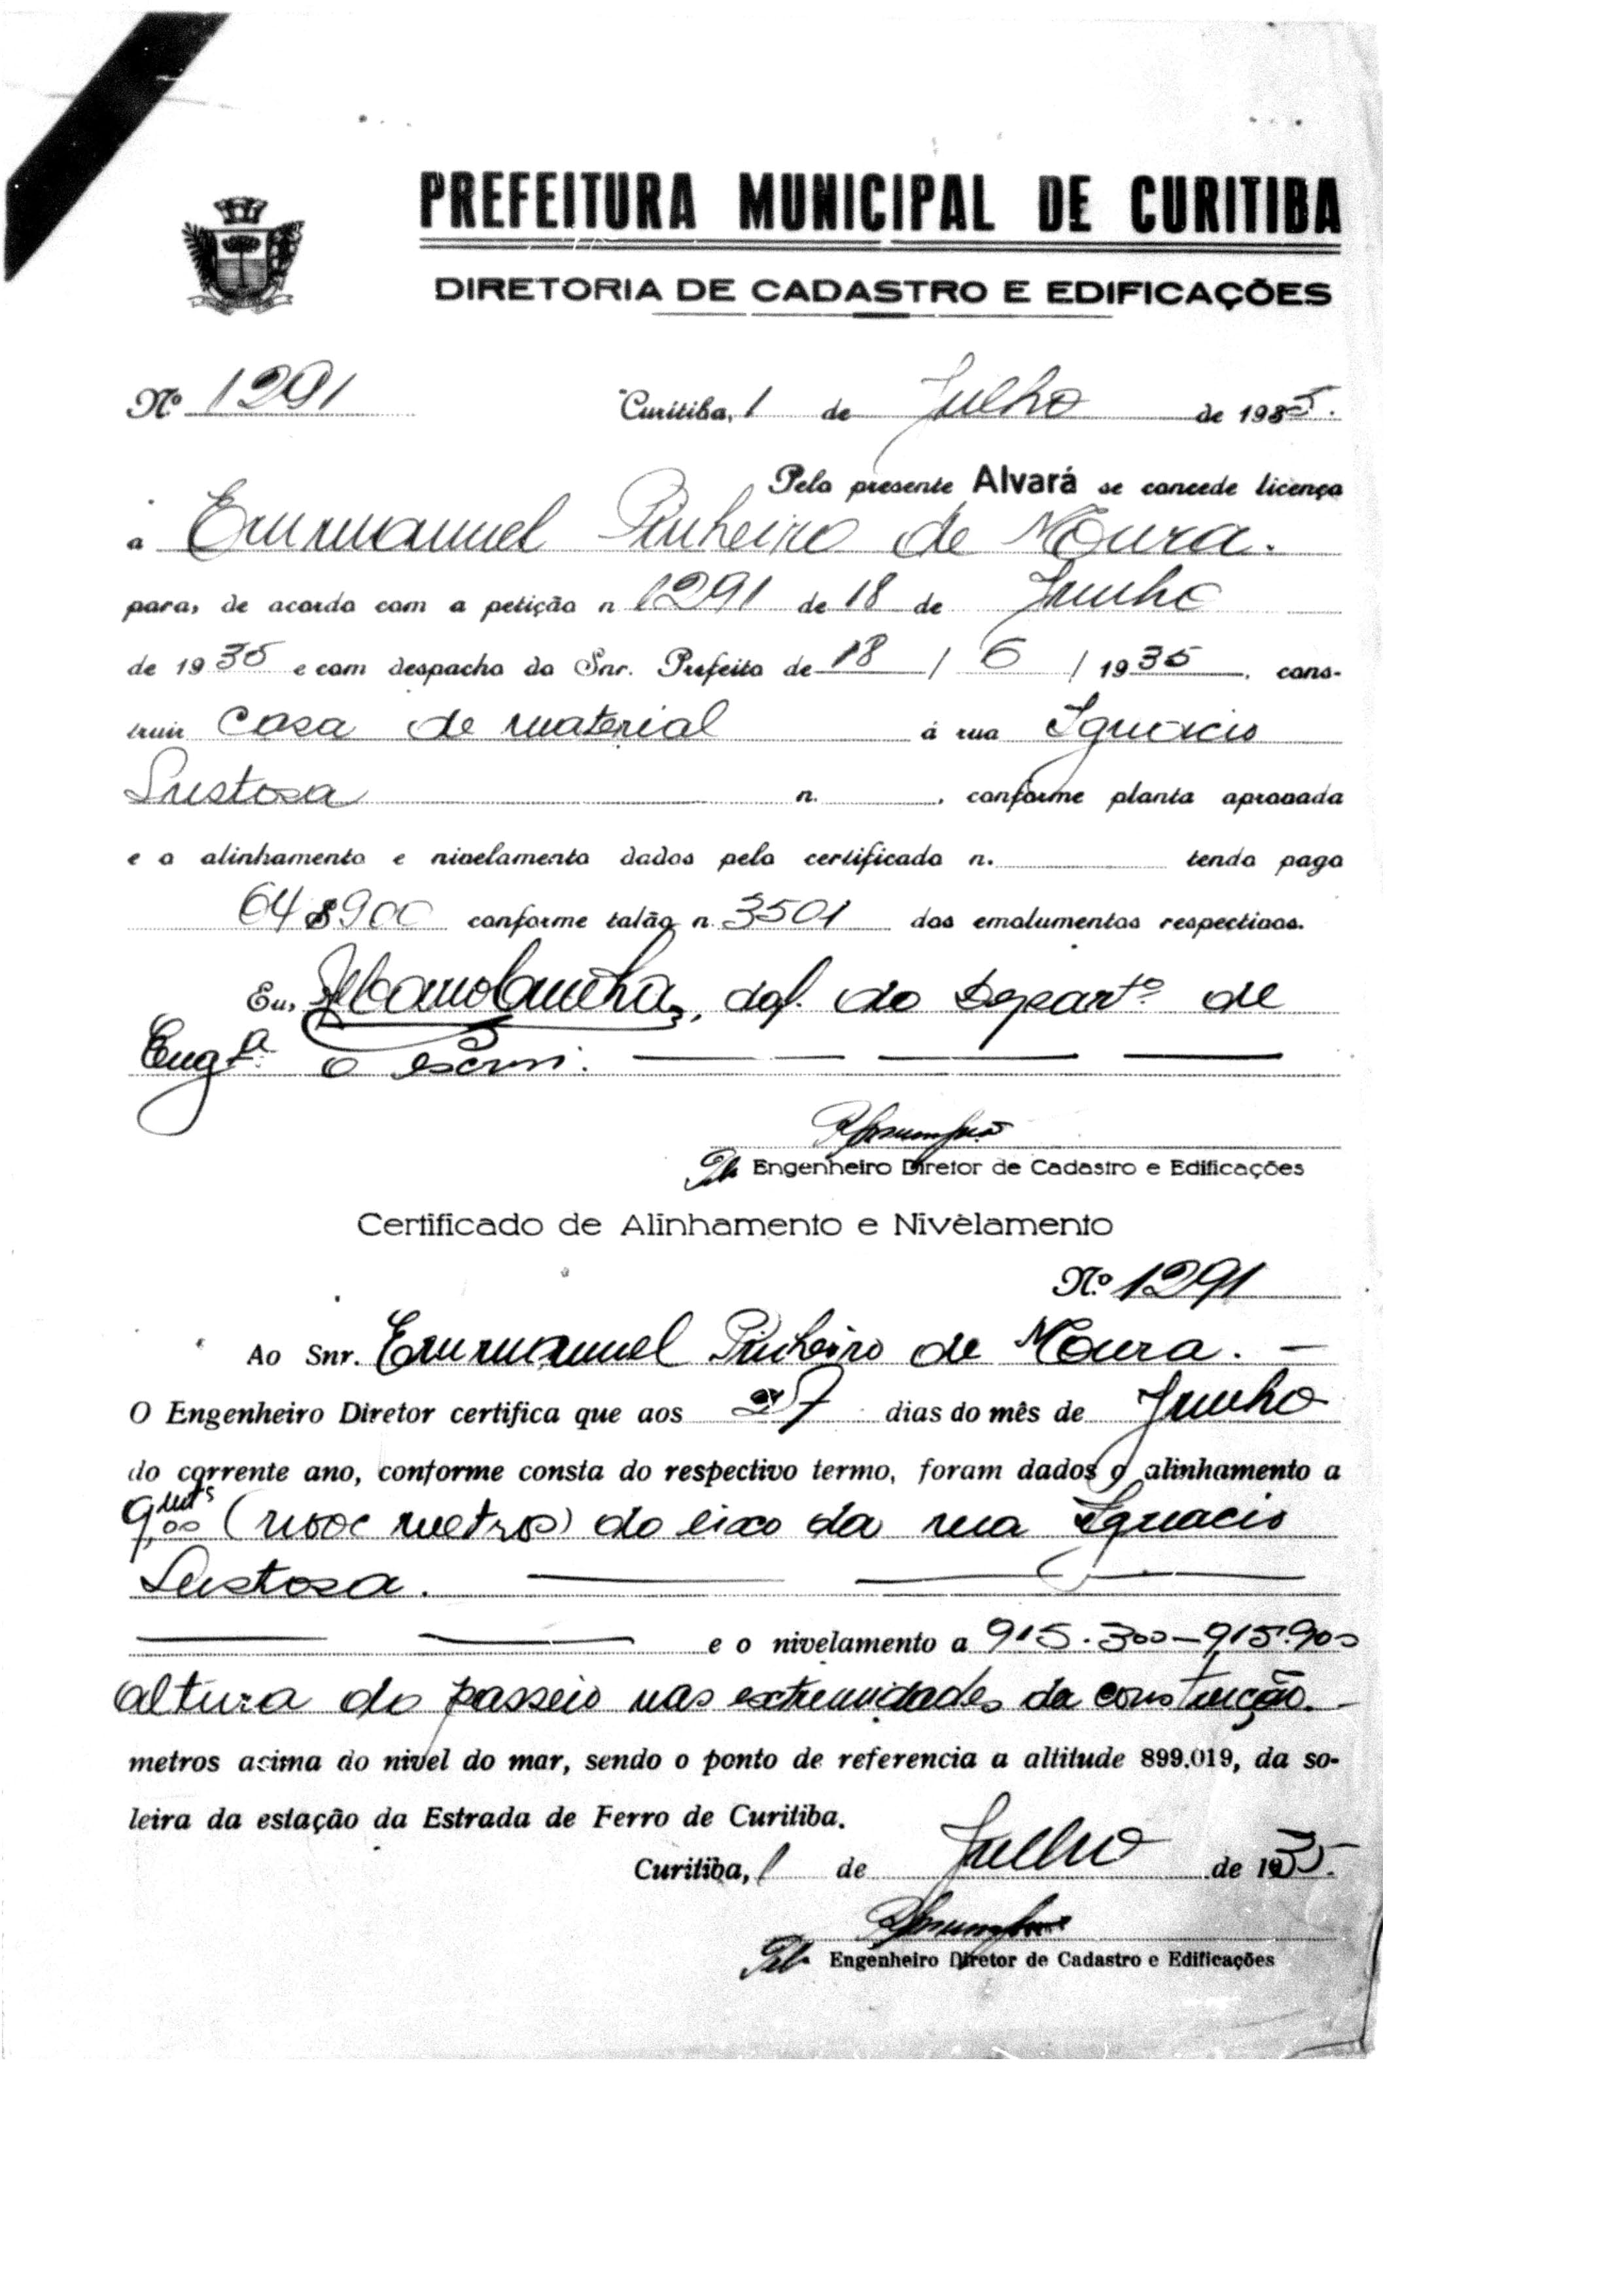 PREFEITURA MUNICIPAL DE CURITIBA
DIRETORIA DE CADASTRO E EDIFICAÇÕES
Nº 1291 Curitiba, 1 de Julho de 1935.
Pelo presente Alvará se concede licença
a Emmanuel Pinheiro de Moura.
para, de acordo com a petição n 1291 de 18 de Junho
de 1935 e com despacho do Snr. Prefeito de 18 / 6 / 1935, cons-
truir casa de material á rua Ignacio
Lustosa n. , conforme planta aprovada
e o alinhamento e nivelamento dados pelo certificado n. tendo pago
64$900 conforme talão n. 3501 dos emolumentos respectivos.
Eu, , do Departº de
Engª o escrevi.
Engenheiro Diretor de Cadastro e Edificações
Certificado de Alinhamento e Nivelamento
Nº 1291
Ao Snr. Emmanuel Pinheiro de Moura. —
O Engenheiro Diretor certifica que aos 27 dias do mês de Junho
do corrente ano, conforme consta do respectivo termo, foram dados o alinhamento a
9,00 mts (nove metros) do eixo da rua Ignacio
Lustosa.
e o nivelamento a 915.300 — 915.900
altura do passeio nas extremidades da construcção. —
metros acima do nivel do mar, sendo o ponto de referencia a altitude 899.019, da so-
leira da estação da Estrada de Ferro de Curitiba.
Curitiba, 1 de Julho de 1935.
Engenheiro Diretor de Cadastro e Edificações